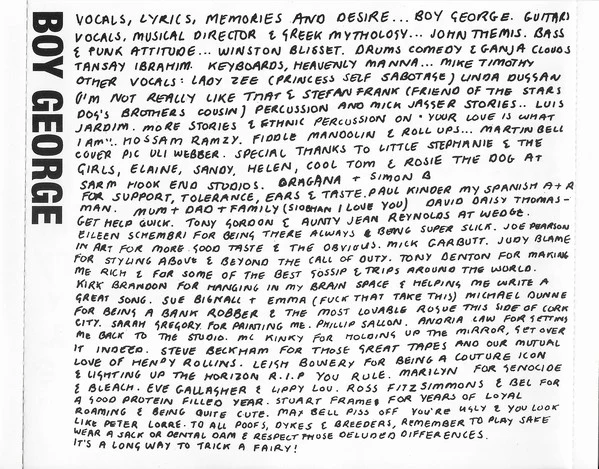 BOY GEORGE
VOCALS, LYRICS, MEMORIES AND DESIRE... BOY GEORGE. GUITARS
VOCALS, MUSICAL DIRECTOR & GREEK MYTHOLOGY... JOHN THEMIS. BASS
& PUNK ATTITUDE... WINSTON BLISSET. DRUMS COMEDY & GANJA CLOUDS
TANSAY IBRAHIM. KEYBOARDS, HEAVENLY MANNA... MIKE TIMOTHY
OTHER VOCALS: LADY ZEE (PRINCESS SELF SABOTAGE) LINDA DUGGAN
(I'M NOT REALLY LIKE THAT & STEFAN FRANK (FRIEND OF THE STARS
DOG'S BROTHERS COUSIN) PERCUSSION AND MICK JAGGER STORIES.. LUIS
JARDIM. MORE STORIES & ETHNIC PERCUSSION ON "YOUR LOVE IS WHAT
I AM". HOSSAM RAMZY. FIDDLE MANDOLIN & ROLL UPS... MARTIN BELL
COVER PIC ULI WEBBER. SPECIAL THANKS TO LITTLE STEPHANIE & THE
GIRLS, ELAINE, SANDY, HELEN, COOL TOM & ROSIE THE DOG AT
SARM HOOK END STUDIOS. DRAGANA + SIMON B
FOR SUPPORT, TOLERANCE, EARS & TASTE. PAUL KINDER MY SPANISH A+R
MAN. MUM + DAD + FAMILY (SIOBHAN I LOVE YOU) DAVID DAISY THOMAS-
GET HELP QUICK. TONY GORDON & AUNTY JEAN REYNOLDS AT WEDGE.
EILEEN SCHEMBRI FOR BEING THERE ALWAYS & BEING SUPER SLICK. JOE PEARSON
IN ART FOR MORE GOOD TASTE & THE OBVIOUS. MICK GARBUTT. JUDY BLAME
FOR STYLING ABOVE & BEYOND THE CALL OF DUTY. TONY DENTON FOR MAKING
ME RICH & FOR SOME OF THE BEST GOSSIP & TRIPS AROUND THE WORLD.
KIRK BRANDON FOR HANGING IN MY BRAIN SPACE & HELPING ME WRITE A
GREAT SONG. SUE BIGNALL + EMMA (FUCK THAT TAKE THIS) MICHAEL DUNNE
FOR BEING A BANK ROBBER & THE MOST LOVABLE ROGUE THIS SIDE OF CORK
CITY. SARAH GREGORY FOR PAINTING ME. PHILLIP SALLON. ANDRIA LAW FOR GETTING
ME BACK TO THE STUDIO. MC KINKY FOR HOLDING UP THE MIRROR, GET OVER
IT INDEED. STEVE BECKHAM FOR THOSE GREAT TAPES AND OUR MUTUAL
LOVE OF HENRY ROLLINS. LEIGH BOWERY FOR BEING A COUTURE ICON
& LIGHTING UP THE HORIZON R.I.P YOU RULE. MARILYN FOR GENOCIDE
& BLEACH. EVE GALLAGHER & LIPPY LOU. ROSS FITZSIMMONS & BEL FOR
A GOOD PROTEIN FILLED YEAR. STUART FRAMED FOR YEARS OF LOYAL
ROAMING & BEING QUITE CUTE. MAX BELL PISS OFF YOU'RE UGLY & YOU LOOK
LIKE PETER LORRE. TO ALL POOFS, DYKES & BREEDERS, REMEMBER TO PLAY SAFE
WEAR A SACK OR DENTAL DAM & RESPECT THOSE DELUDED DIFFERENCES.
IT'S A LONG WAY TO TRICK A FAIRY!